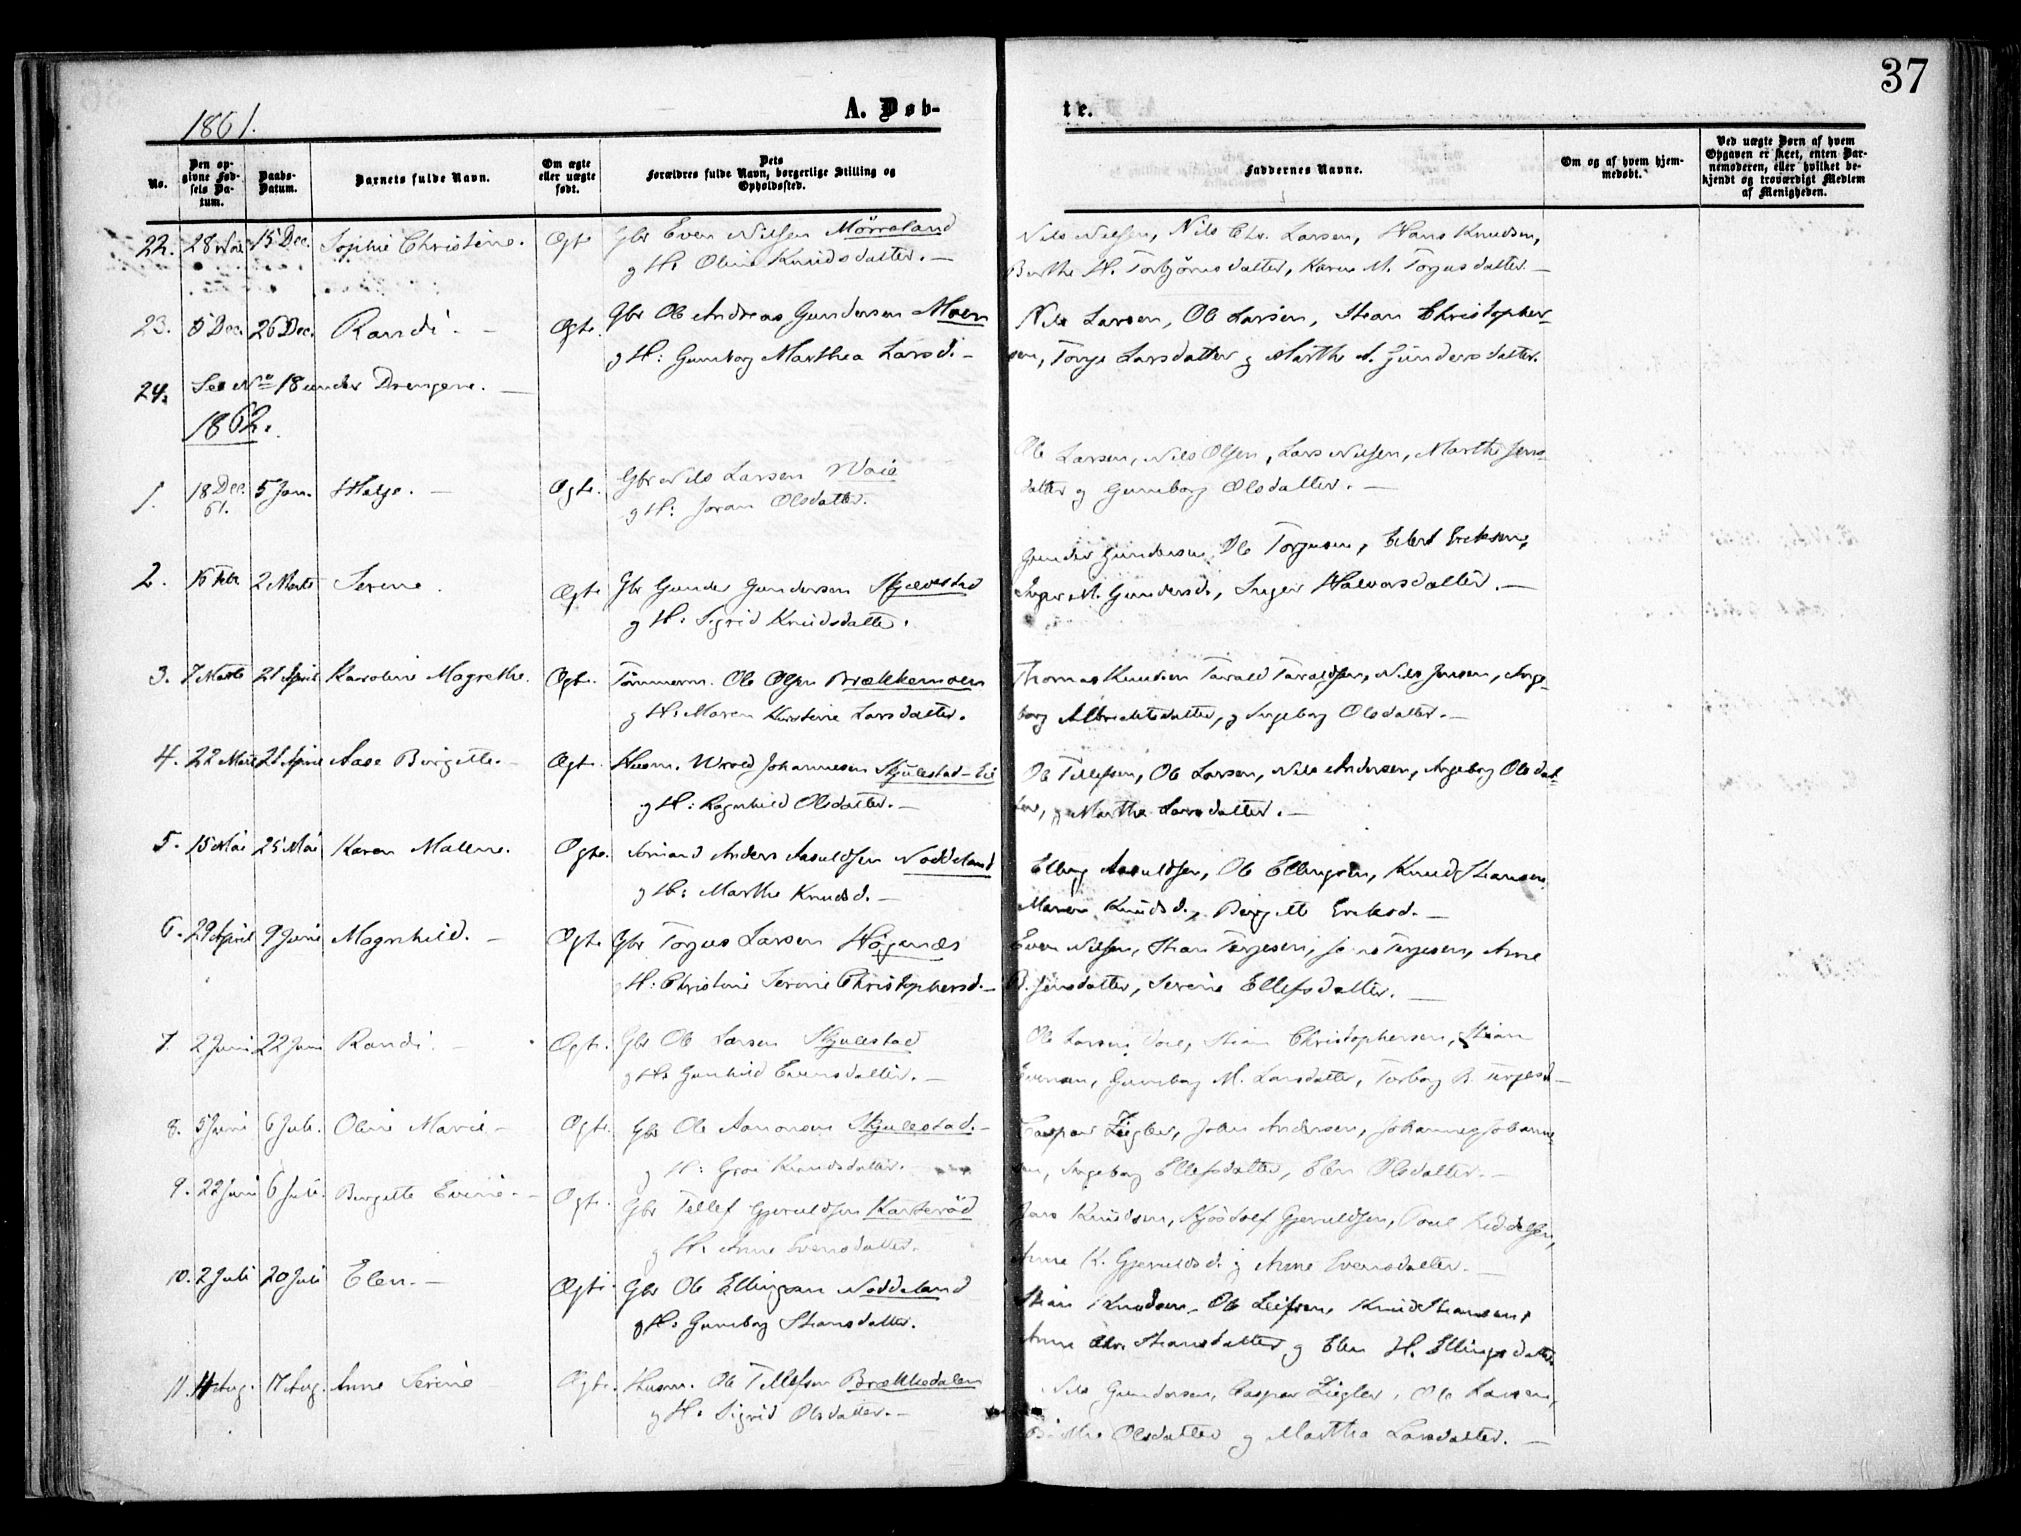 37
1861.
A. Døb-
te.
No.
Den op-
givne Fød-
sels Da-
tum.
Daabs-
Datum.
Barnets fulde Navn.
Om ægte
eller uægte
født.
Dets
Forældres fulde Navn, borgerlige Stilling og
Opholdsted.
Faddernes Navne.
Om og af hvem hjem-
medøbt.
Ved uægte Børn af hvem
Opgaven er skeet, enten Bar-
nemoderen, eller hvilket be-
kjendt og troværdigt Medlem
af Menigheden.
22. 28 15 Dec. Sophie Christine. Ægte Gbr Even Nilsen Mörreland
og H: Oline Knudsdatter. —
Nils Nilsen, Nils Chr. Larsen, Hans Knudsen,
Berthe H. Torbjörnsdatter, Karen M. Torjusdatter —
23. 5 Dec. 26 Dec. Randi. — Ægte. Gbr Ole Andreas Gundersen Moen
og H: Gunborg Marthea Larsd. —
Nils Larsen, Ole Larsen, Stian Christopher-
sen, Torge Larsdatter og Marthe A. Gundersdatter.
24. See No 18 under Drengene. —
1862.
1. 18 Dec. 61. 5 Jan. Helge. — Ægte. Gbr Nils Larsen Waie
og H: Joran Olsdatter.
Ole Larsen, Nils Olsen, Lars Nilsen, Marthe Jens-
datter og Gunborg Olsdatter. —
2. 15 Febr 2 Marts Serine. Ægte Gbr Gunder Gundersen Skjulestad
og H: Sigrid Knudsdatter.
Gunder Gundersen, Ole Torjusen, Eilert Eriksen,
Inger M. Gundersd., Inger Halvorsdatter. —
3. 7 Marts 21 April Karoline Magrethe. Ægte. Tömmerm. Ole Olsen Brækkemoen
og H: Maren Kirstine Larsdatter.
Thomas Knudsen Tarald Taraldsen, Nils Jensen, Inge-
borg Albrechtsdatter, og Ingeborg Olsdatter. —
4. 22 Marts 21 April Aase Birgitte. — Ægte. Husm. Wrold Johannesen Skjulestad-Eie
og H: Ragnhild Olsdatter. —
Ole Tellefsen, Ole Larsen, Nils Andersen, Ingeborg Olsdat-
ter, og Marthe Larsdatter. —
5. 15 Mai 25 Mai Karen Malene. Ægte. Sömand Anders Aasuldsen Noddeland
og H: Marthe Knudsd. —
Elling Aasuldsen, Ole Ellingsen, Knud Stiansen,
Maren Knudsd., Birgitte Eriksd. —
6. 29 April 9 Juni Magnhild. — Ægte. Gbr Torjus Larsen Högenæs
H: Christine Serine Christophersd. —
Even Nilsen, Stian Terjesen, Jens Terjesen, Anne
B. Jensdatter, Serine Ellefsdatter. —
7. 2 Juni 22 Juni Randi. — Ægte. Gbr Ole Larsen Skjulestad
og H: Gunhild Evensdatter. —
Ole Larsen Stian Christophersen, Stian
Evensen, Gunborg M. Larsdatter, Torborg B. Terjesd —
8. 5 Juni 6 Juli. Oline Marie — Ægte. Gbr Ole Aanonsen Skjulestad. —
og H: Groe Knudsdatter. —
Caspar Ziegler, John Andersen, Johannes Johanne-
sen, Ingeborg Ellefsdatter, Elen Olsdatter. —
9. 22 Juni 6 Juli. Birgitte Evine. — Ægte. Gbr Tellef Gjeruldsen Karteröd
og H. Anne Evensdatter.
Jens Knudsen, Kjöstolf Gjeruldsen, Poul Kiddelsen,
Anne K. Gjeruldsd. og Anne Evensdatter. —
10. 2 Juli 20 Juli Elen. — Ægte. Gbr Ole Ellingsen Noddeland
og H: Gunborg Stiansdatter.
Stian Knudsen Ole Leifsen, Knud Stiansen,
Anne Stiansdatter og Elen H. Ellingsdatter
11. Aug. 17 Aug. Anne Serine Ægte. Husm. Ole Tellefsen Brækkedalen
og H: Sigrid Olsdatter. —
Nils Gundersen, Caspar Ziegler, Ole Larsen,
Olsdatter og Marthea Larsdatter. —